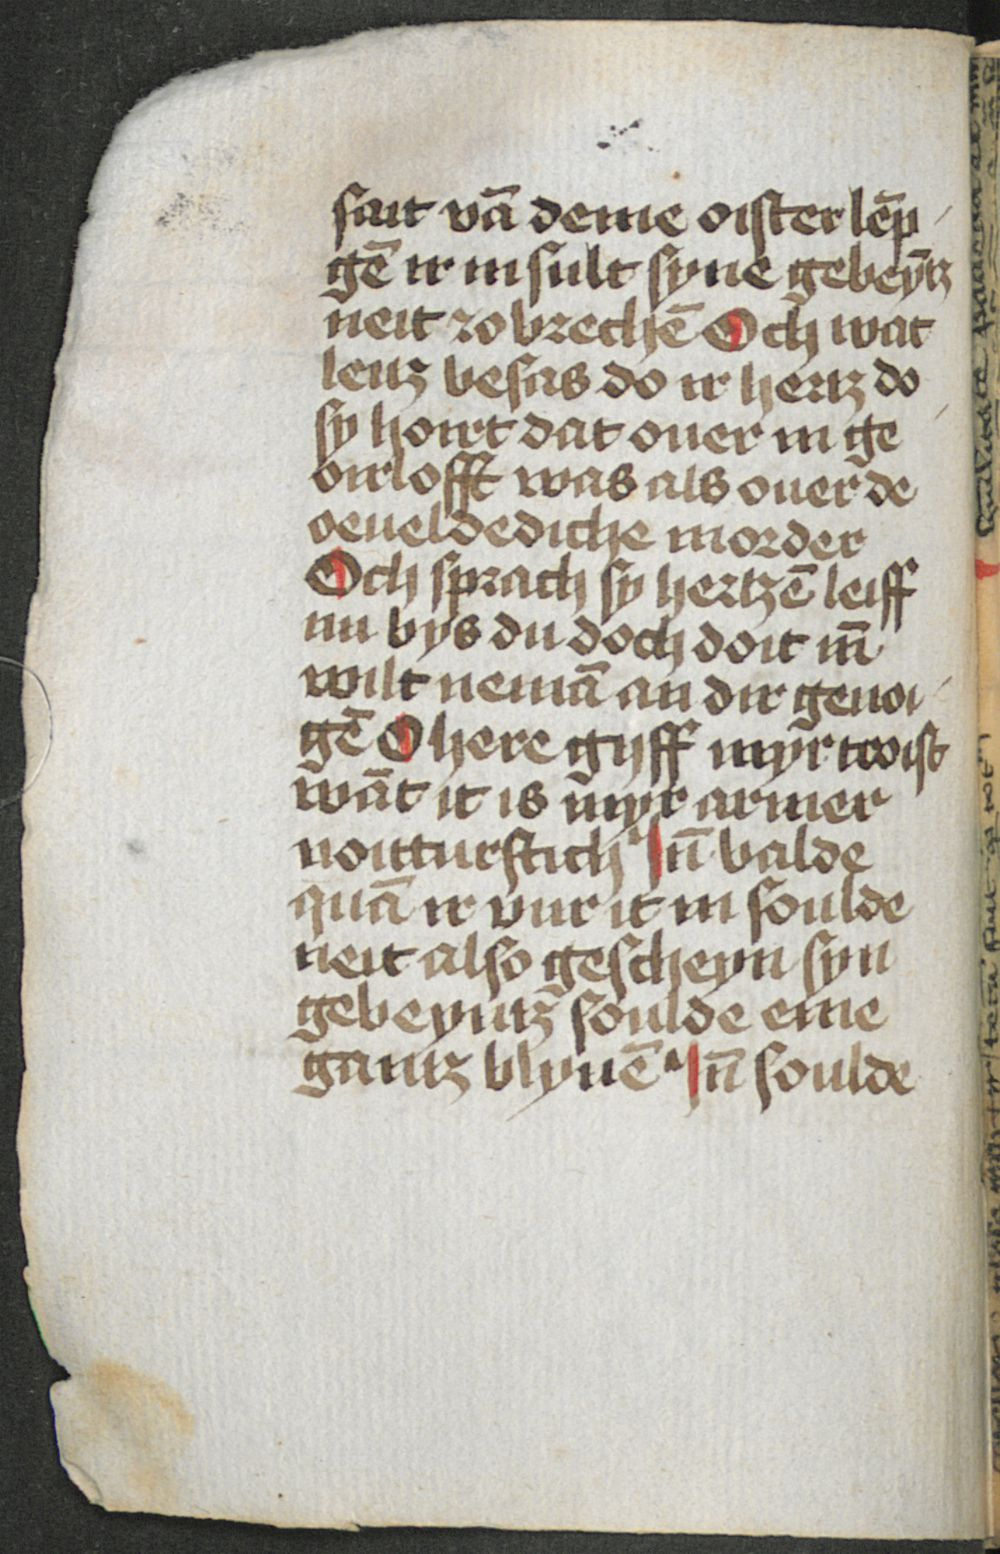 sait vā deme oister lēp
gē ir in sult syne gebeȳtz
neit zo brechē Och wat
leitz besas do ir hertz do
sy hoirt dat ouer in ge
oirlofft was als ouer de
oeueldediche morder
Och sprach sy hertzē leiff
nu bys du doch doit in̄
wilt nemā an dir genoi
gē O here gyff myr troist
wāt it is myr armer
noitturftich In̄ balde
quā ir vur it in soulde
neit also gescheyn syn
gebeyntz soulde eme
gantz blyuē In̄ soulde